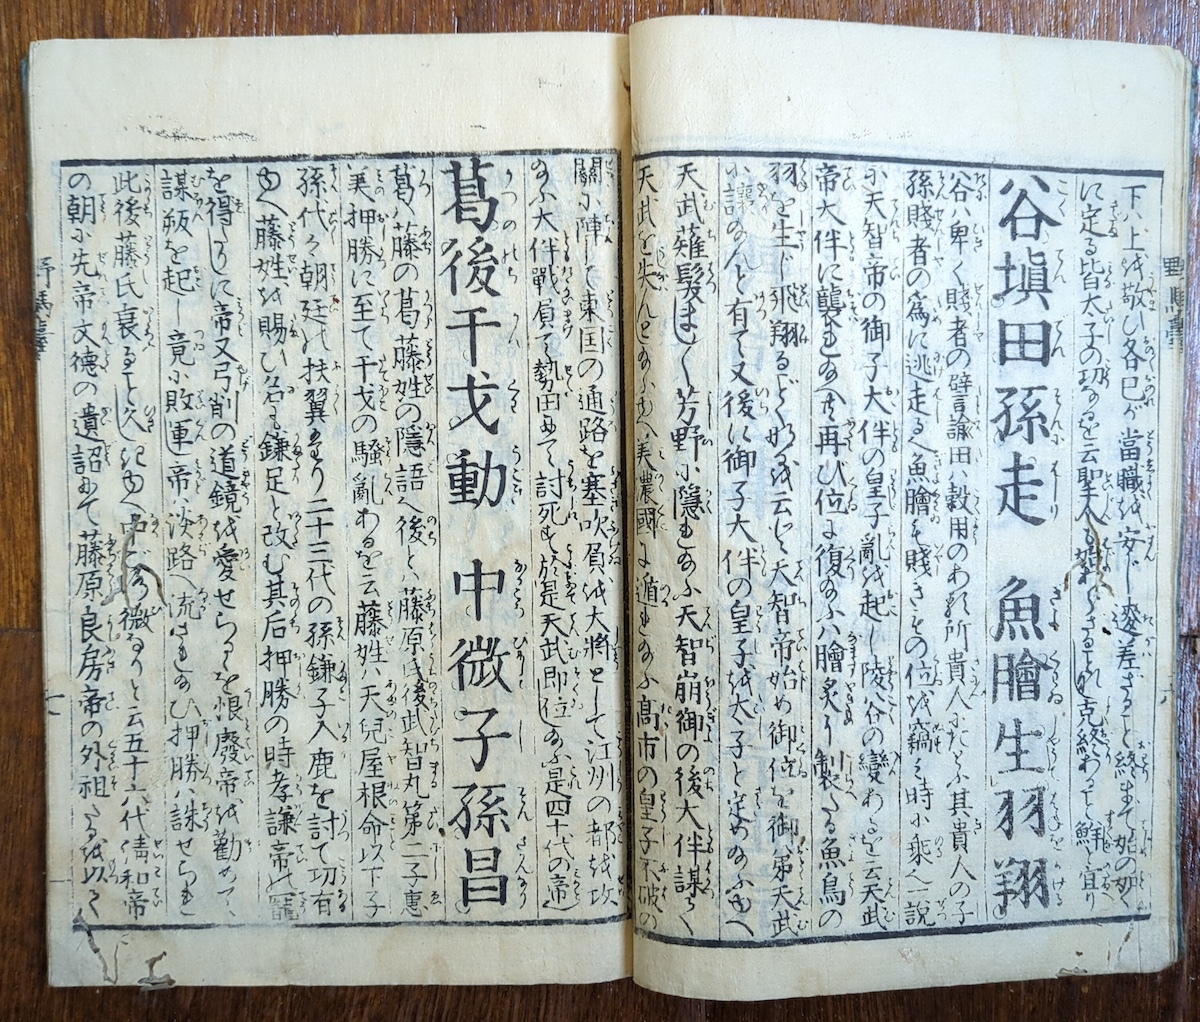 下ハ上を敬ひ各己が當職を安んし逡差さること終まて始の如く
に定る皆太子の功なるを云聖人も
谷塡田孫走 魚膾生羽翔
谷ハ卑く賤者の譬言論田ハ穀用のある所貴人にたとふ其貴人の子
孫賤者の為に逃走る也魚膾も賤きその位を竊む時に乘也一説
に天智帝の御子大伴の皇子亂を起し陵谷の變あるを云天武
帝大伴に襲れ給へ共再び位に復給ふハ膾炙り製たる魚鳥の
羽を生じ飛翔るごとくなるを云と天智帝始め御位を御弟天武
に讓給んと有て又後に御子大伴の皇子を太子と定め給ふゆへ
天武薙髮まし〱芳野に隱れ給ふ天智崩御の後大伴謀て
天武を失んとし給ふゆへ美濃國に遁れ給ふ高市の皇子不破の
關に陣して東国の通路を塞吹負を大將として江州の都を攻
給ふ大伴戰負て勢田にて討死す於是天武即位し給ふ是四十代の帝也
葛後干戈動 中微子孫昌
葛ハ藤の葛藤姓の隱語也後とハ藤原氏後武智丸第二子惠
美押勝に至て干戈の騷亂あるを云藤姓ハ天兒屋根命以下子
孫代々朝廷の扶翼なり二十三代の孫鎌子入鹿を討て功有
ゆへ藤姓を賜ひ名も鎌足と改む其后押勝の時孝謙帝の寵
を得しに帝又弓削の道鏡を愛せらるるを恨廢帝を勸めて
謀叛を起し竟に敗軍帝ハ淡路へ流され給ひ押勝ハ誅せられ
此後藤氏衰ること久きゆへ中ごろ微なりと云五十六代清和帝
の朝に先帝文德の遺詔にて藤原良房帝の外祖たるを以て